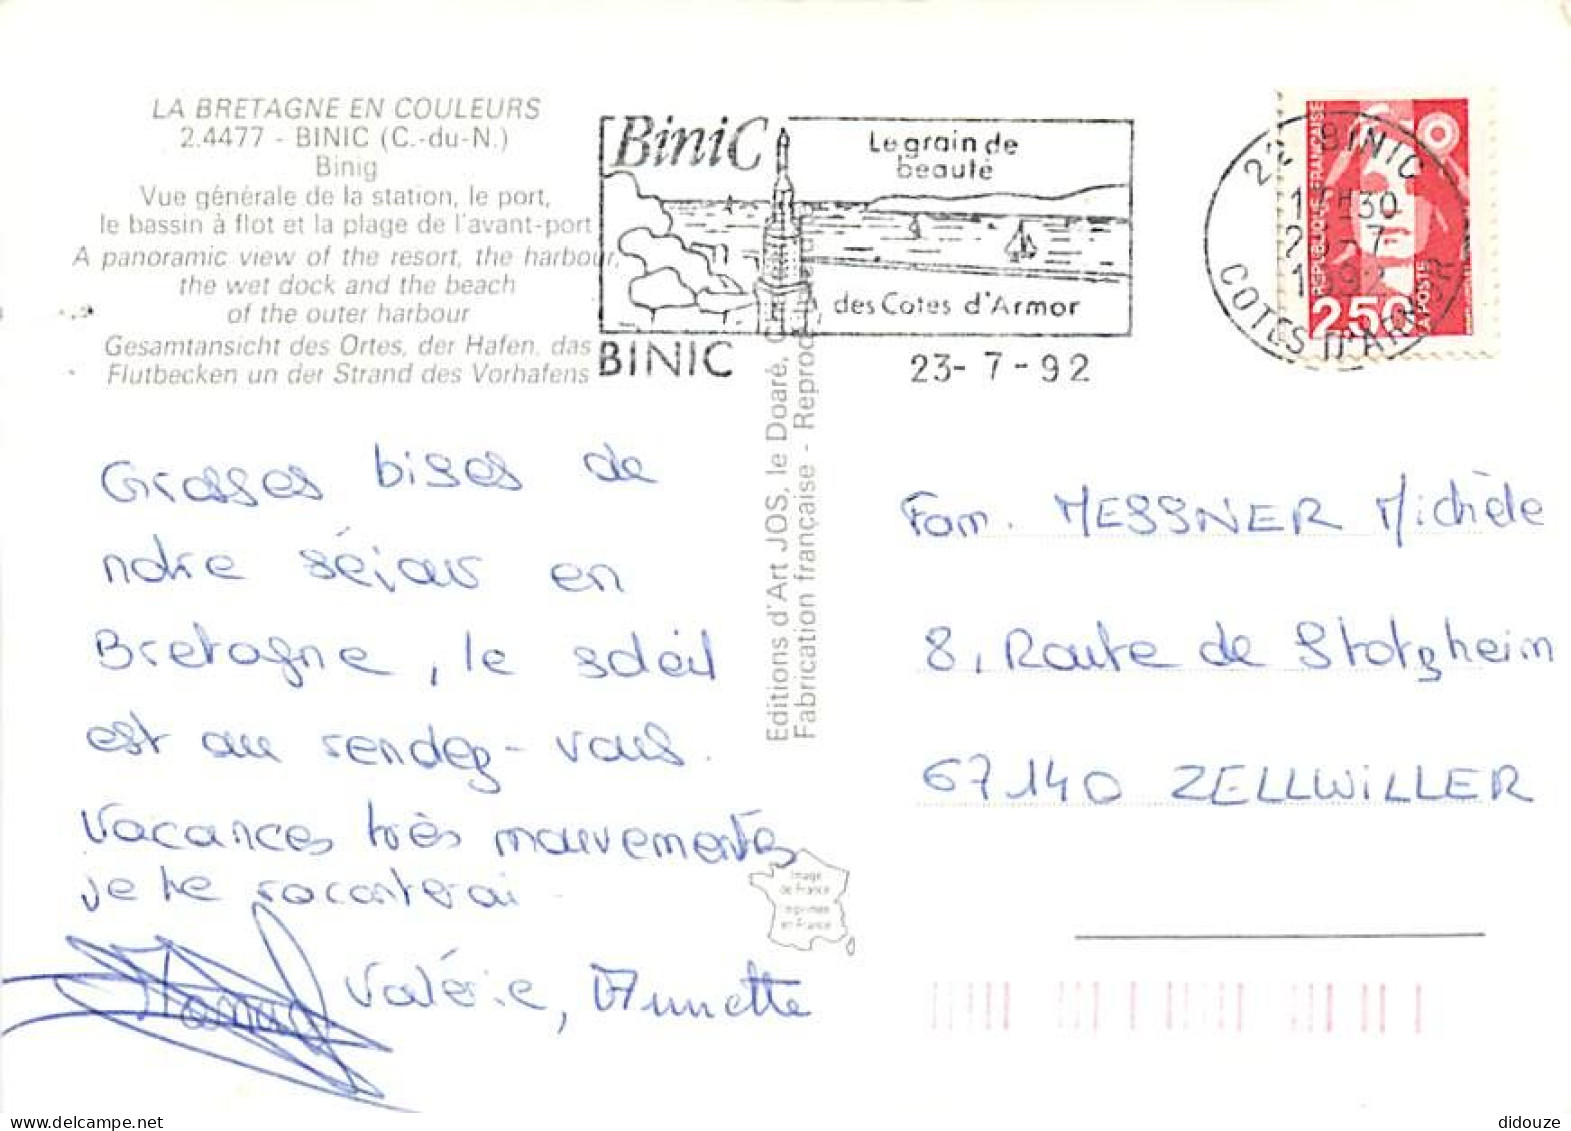 LA BRETAGNE EN COULEURS
2.4477 - BINIC (C.-du-N.)
Binig
Vue générale de la station, le port,
le bassin à flot et la plage de l'avant-port
A panoramic view of the resort, the harbour,
the wet dock and the beach
of the outer harbour
Gesamtansicht des Ortes, der Hafen, das
Flutbecken un der Strand des Vorhafens
BiniC
Le grain de
beauté
des Cotes d'Armor
BINIC
23-7-92
22 BINIC
COTES D'ARMOR
REPUBLIQUE FRANÇAISE
2,50
LA POSTE
Grosses bises de
notre séjour en
Bretagne, le soleil
est au rendez-vous.
Vacances très mouvementés
je te raconterai.
Valérie, Annette
Editions d'Art JOS, le Doaré,
Fabrication française - Reproduction
Image
de France
imprimée
en France
Fam. MESSNER Michèle
8, Route de Stotzheim
67140 ZELLWILLER
didouze